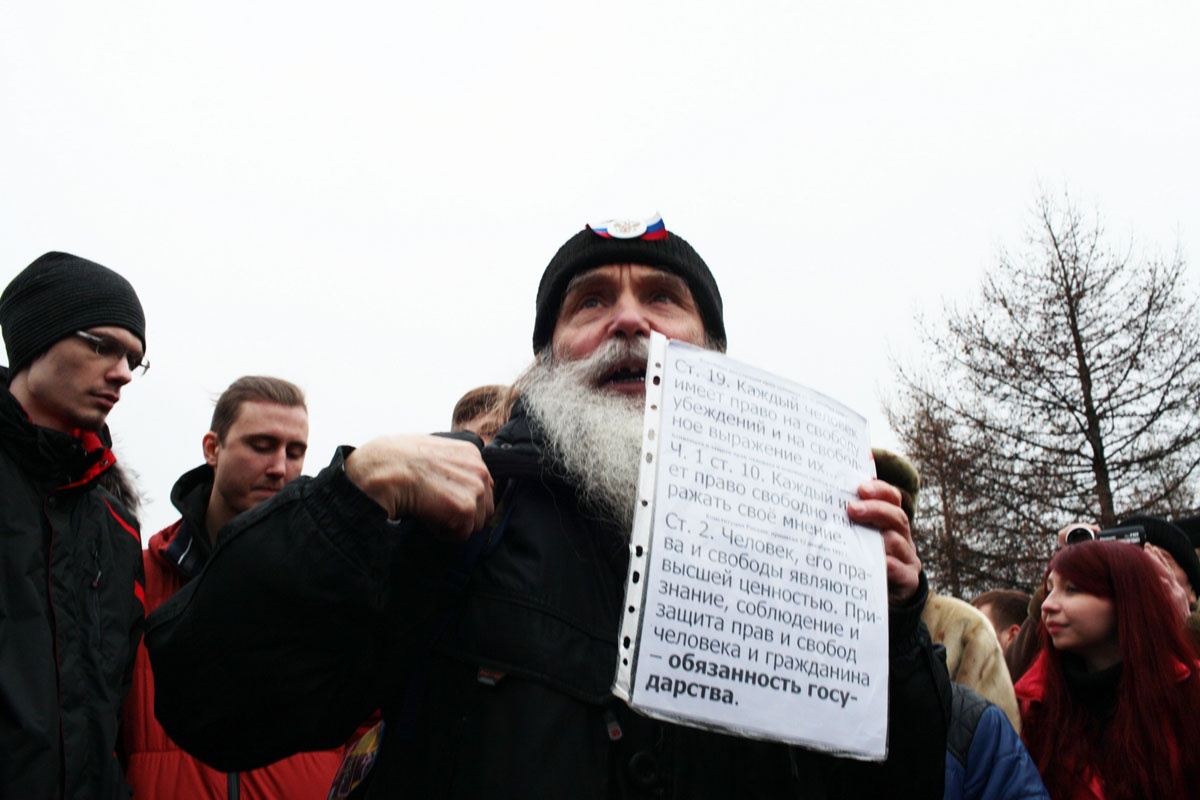 Ст. 19. Каждый человек
имеет право на свободу
убеждений и на свобод-
ное выражение их.
Ч. 1 ст. 10. Каждый
ет право свободно вы-
ражать своё мнение.
Ст. 2. Человек, его пра-
ва и свободы являются
высшей ценностью. При-
знание, соблюдение и
защита прав и свобод
человека и гражданина
– обязанность госу-
дарства.